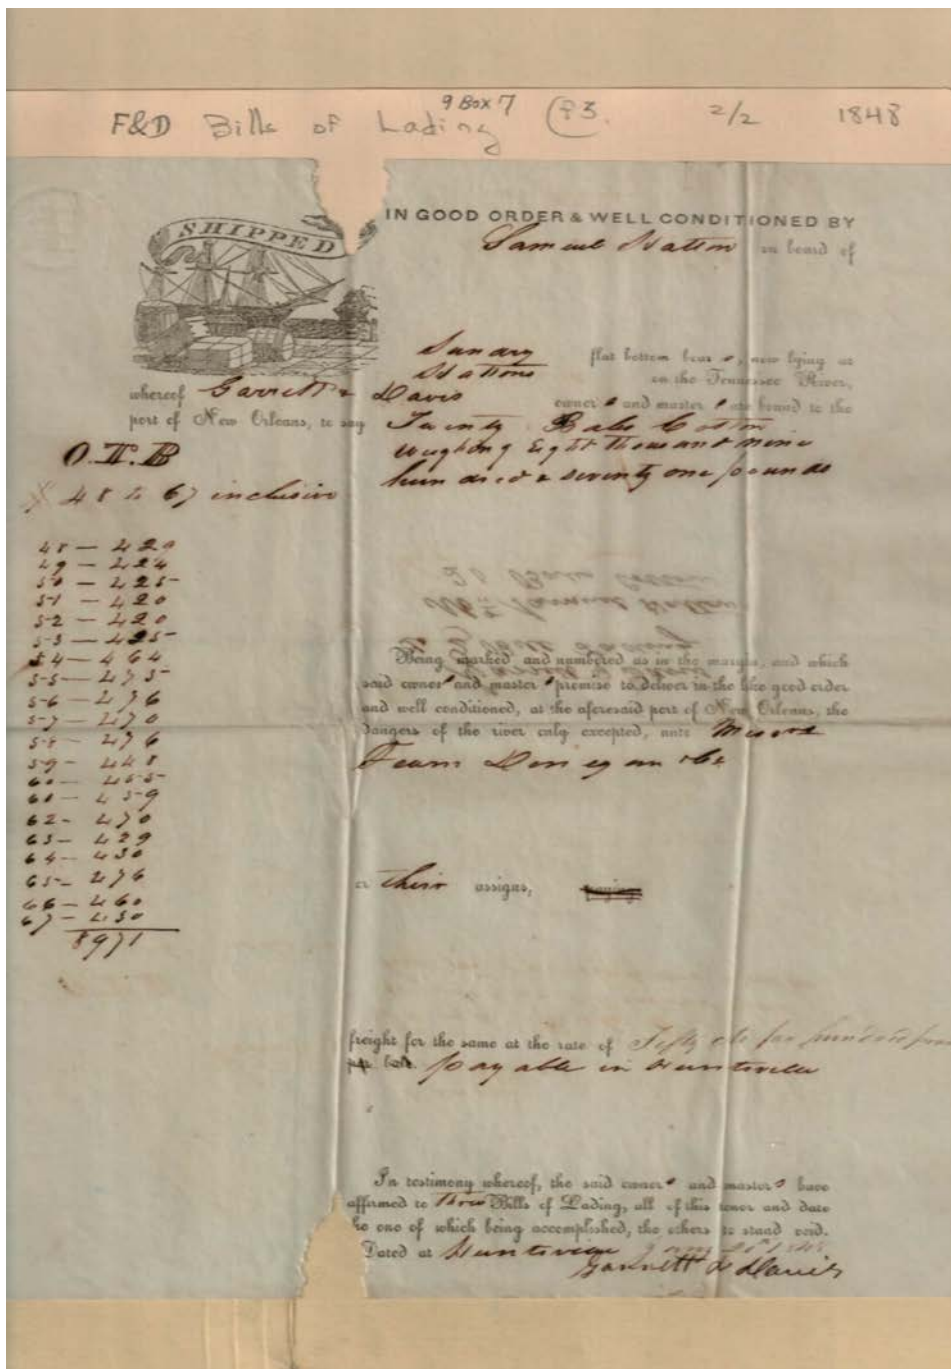 9 Box 7
F&D Bills of Lading 2/2 1848
SHIPPED IN GOOD ORDER & WELL CONDITIONED BY
Samuel on board of
Sundry flat bottom boats, now lying at
on the Tennessee River,
whereof Garrett & Davis owners and masters are bound to the
port of New Orleans, to say Twenty Bales Cotton
weighing Eight thousand nine
hundred & seventy one pounds
48 to 67 inclusive
49 — 424
50 — 425
51 — 420
52 — 420
53 — 425
54 — 464
55 — 475
56 — 476
57 — 470
58 — 476
59 — 448
60 — 455
459
62 — 470
63 — 429
64 — 430
65 — 476
66 — 460
67 — 450
8971
Being marked and numbered as in the margin, and which
said owners and masters promise to deliver in the like good order
and well conditioned, at the aforesaid port of New Orleans, the
dangers of the river only excepted, unto Messrs
Fearn Donegan & Co
or their assigns, paying
freight for the same at the rate of Fifty cts per hundred
per bale payable in Huntsville
In testimony whereof, the said owners and masters have
affirmed to three Bills of Lading, all of this tenor and date
the one of which being accomplished, the others to stand void.
Dated at Huntsville
Garrett & Davis